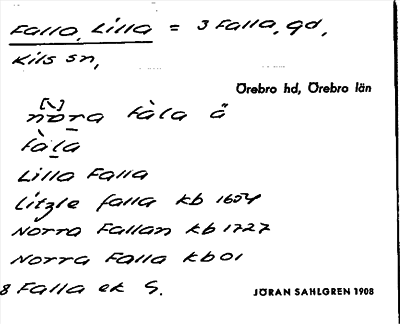 Falla, Lilla = 3 Falla, gd,
Kils sn,
Örebro hd, Örebro län
nora fàla å
fàla
Lilla Falla
Litzle falla kb 1654
Norra Fallan kb 1727
Norra Falla kb 01
8 Falla ek G.
JÖRAN SAHLGREN 1908